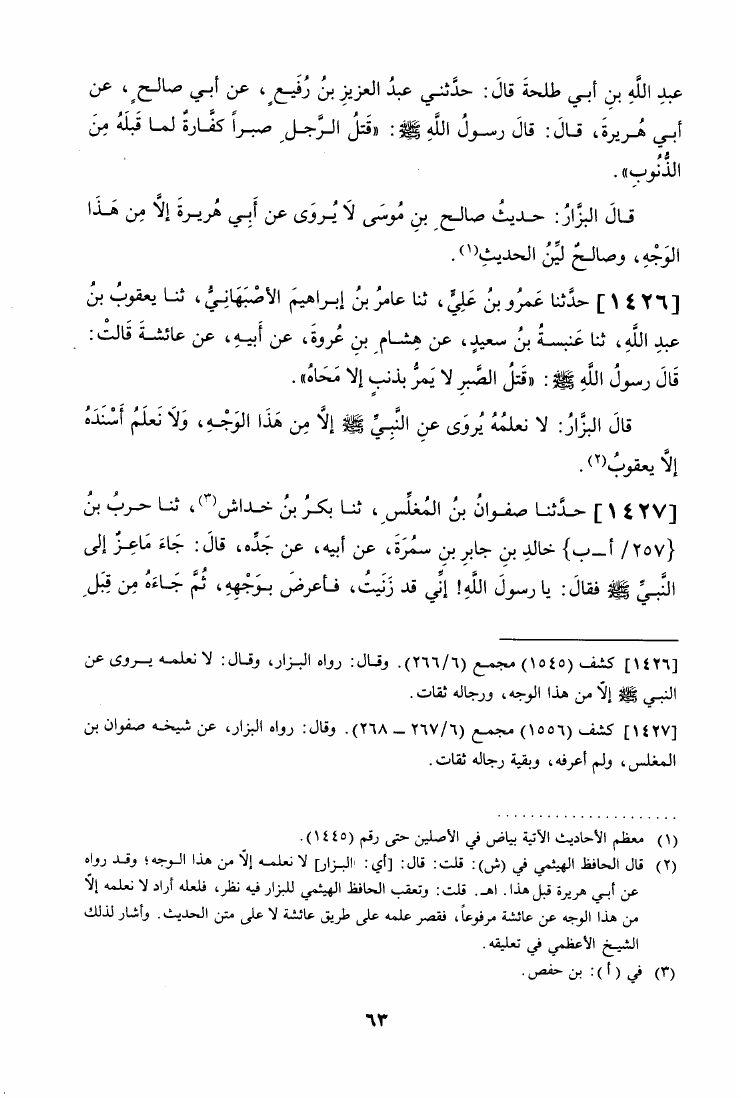 عبدِ اللَّهِ بنِ أبـي طلحةَ قالَ: حدَّثنـي عبدُ العزيزِ بنُ رُفَيـعٍ، عن أبـي صالـحٍ، عن
أبـي هُـريرةَ، قـالَ: قالَ رسـولُ اللَّهِ ﷺ: «قَتلُ الـرَّجـلِ صبـراً كفَّـارةٌ لمـا قَبلَهُ مِنَ
الذُّنُوبِ».
قـالَ البزَّارُ: حـديثُ صالـحِ بنِ مُوسَى لَا يُـروَى عن أَبِـي هُريـرةَ إلَّا مِن هَـذَا
الوَجْهِ، وصالـحٌ ليِّنُ الحديثِ(١).
[١٤٢٦] حدَّثنا عَمرُو بنُ عَليٍّ، ثنا عامرُ بنُ إبـراهيمَ الأصْبَهَانِـيُّ، ثنـا يعقوبُ بنُ
عبدِ اللَّهِ، ثنا عَنبسـةُ بنُ سعيدٍ، عن هِشـامِ بنِ عُروةَ، عن أَبيـهِ، عن عائشـةَ قَالتْ:
قَالَ رسولُ اللَّهِ ﷺ: «قَتلُ الصَّبرِ لا يَمرُّ بذنبٍ إلا مَحَاهُ».
قالَ البزَّارُ: لا نعلمُهُ يُروَى عنِ النَّبـيِّ ﷺ إلَّا مِن هَذَا الوَجْـهِ، وَلَا نَعلَمُ أَسْنَدَهُ
إلَّا يعقوبُ(٢).
[١٤٢٧] حـدَّثنـا صفـوانُ بنُ المُغلِّسِ، ثنـا بكـرُ بنُ خـداش(٣)، ثنـا حـربُ بنُ
{٢٥٧/ أ ــ ب} خالدِ بنِ جابرِ بنِ سمُرَةَ، عن أبيه، عن جَدِّه، قالَ: جَاءَ مَاعِـزٌ إلى
النَّبـيِّ ﷺ فقالَ: يا رسولَ اللَّهِ! إنِّي قد زَنَيتُ، فـأعرضَ بـوَجْهِهِ، ثُمَّ جَـاءَهُ مِن قِبَلِ
[١٤٢٦] كشف (١٥٤٥) مجمـع (٢٦٦/٦). وقـال: رواه البـزار، وقـال: لا نعلمـه يــروى عن
النبـي ﷺ إلّا من هذا الوجه، ورجاله ثقات.
[١٤٢٧] كشف (١٥٥٦) مجمع (٢٦٧/٦ ــ ٢٦٨). وقال: رواه البزار، عن شيخـه صفوان بن
المغلس، ولم أعرفه، وبقية رجاله ثقات.
(١) معظم الأحاديث الآتية بياض في الأصلين حتى رقم (١٤٤٥).
(٢) قال الحافظ الهيثمي في (ش): قلت: قال: [أي: البـزار] لا نعلمـه إلّا من هذا الـوجه؛ وقـد رواه
عن أبـي هريرة قبل هذا. اهـ. قلت: وتعقب الحافظ الهيثمي للبزار فيه نظر، فلعله أراد لا نعلمه إلّا
من هذا الوجه عن عائشة مرفوعاً، فقصر علمه على طريق عائشة لا على متن الحديث. وأشار لذلك
الشيـخ الأعظمي في تعليقه.
(٣) في (أ): بن حفص.
٦٣